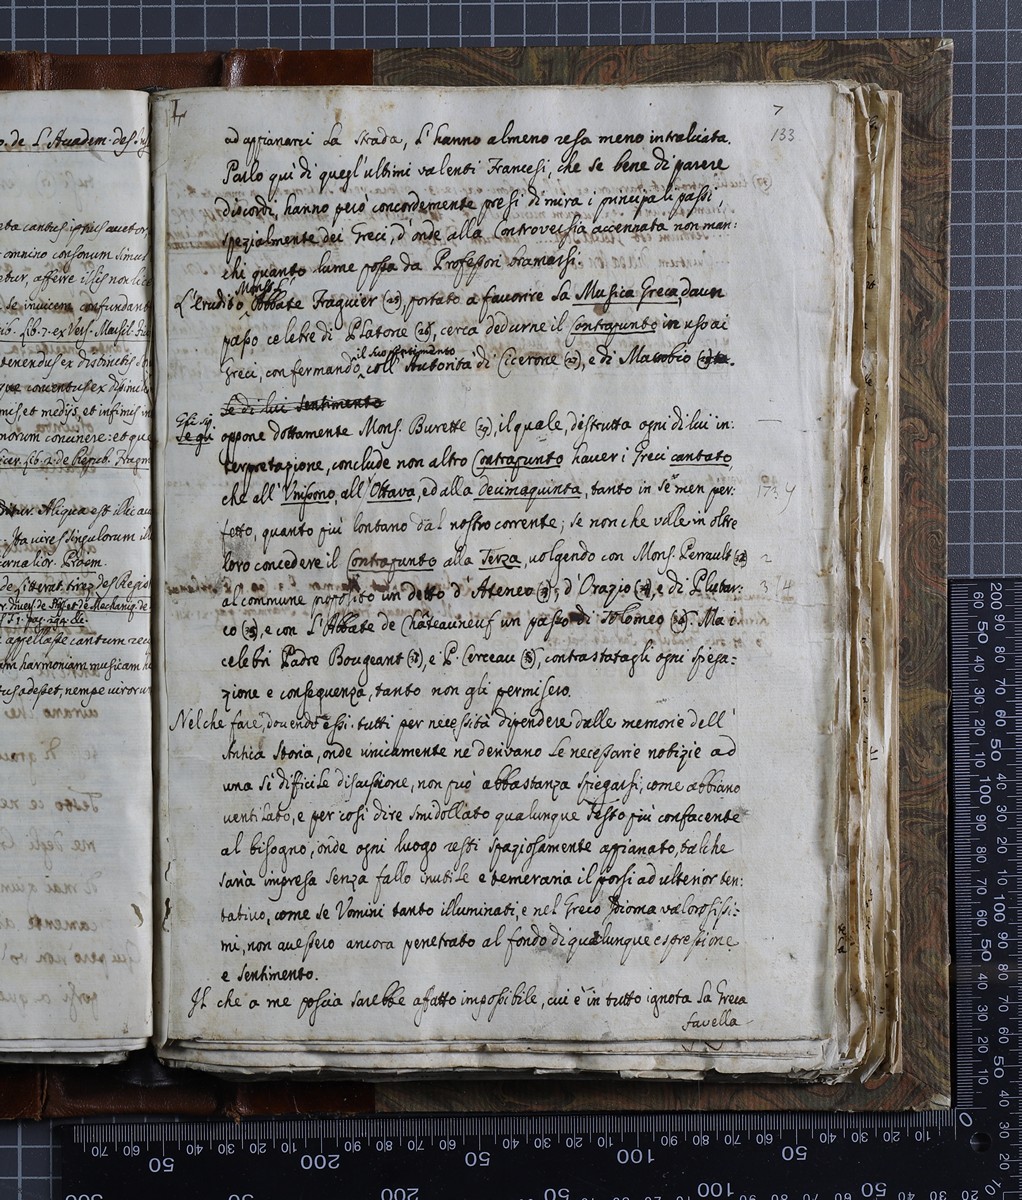 o. de L'Academ. des Ins
7
133
ad appianarci La Strada, L'hanno almeno resa meno intralciata.
Parlo quì di quegl'ultimi valenti Francesi, che se bene di parere
discordi, hanno però concordemente presi di mira i principali passi,
spezialmente dei Greci, d'onde alla Controversia accennata non man:
chi quanto lume possa da Professori bramarsi
L'erudito Mons.r Abbate Fraguier (25), portato a favorire La Musica Greca, da un
passo celebre di Platone (26), cerca dedurne il Contrapunto in uso ai
Greci, confermando il suo sentimento coll'Autorità di Cicerone (27), e di Macrobio (28).
Se di lui Sentimento
Gli si
oppone dottamente Mons. Burette (29), il quale, distrutta ogni di lui in:
terpretazione, conclude non altro Contrapunto haver i Greci cantato,
che all'Unissono, all'Ottava, ed alla Decimaquinta, tanto in se men per:
fetto, quanto più lontano dal nostro corrente; se non che volle in oltre
loro concedere il Contrapunto alla Terza, volgendo con Mons. Perrault
al commune proposito un detto d'Ateneo, d'Orazio, e di Plutar:
co, e con L'Abbate de Châteauneuf un passo di Tolomeo. Ma i
celebri Padre Bougeant, e P. Cerceau, contrastatagli ogni spiega:
zione e conseguenza, tanto non gli permisero.
Nel che fare, dovendo essi tutti per necessità dipendere dalle memorie dell'
Antica Storia, onde unicamente ne derivano Le necessarie notizie ad
una sì difficile discussione, non può abbastanza spiegarsi, come abbiano
ventilato, e per così dire smidollato qualunque Testo più confacente
al bisogno, onde ogni luogo resti spaziosamente appianato, talche
saria impresa senza fallo inutile e temeraria il porsi ad ulterior ten:
tativo, come se Uomini tanto illuminati, e nel Greco Idioma valorosissi:
mi, non avessero ancora penetrato al fondo di qualunque espressione
e Sentimento.
Il che a me poscia sarebbe affatto impossibile, cui è in tutto ignota La Greca
favella